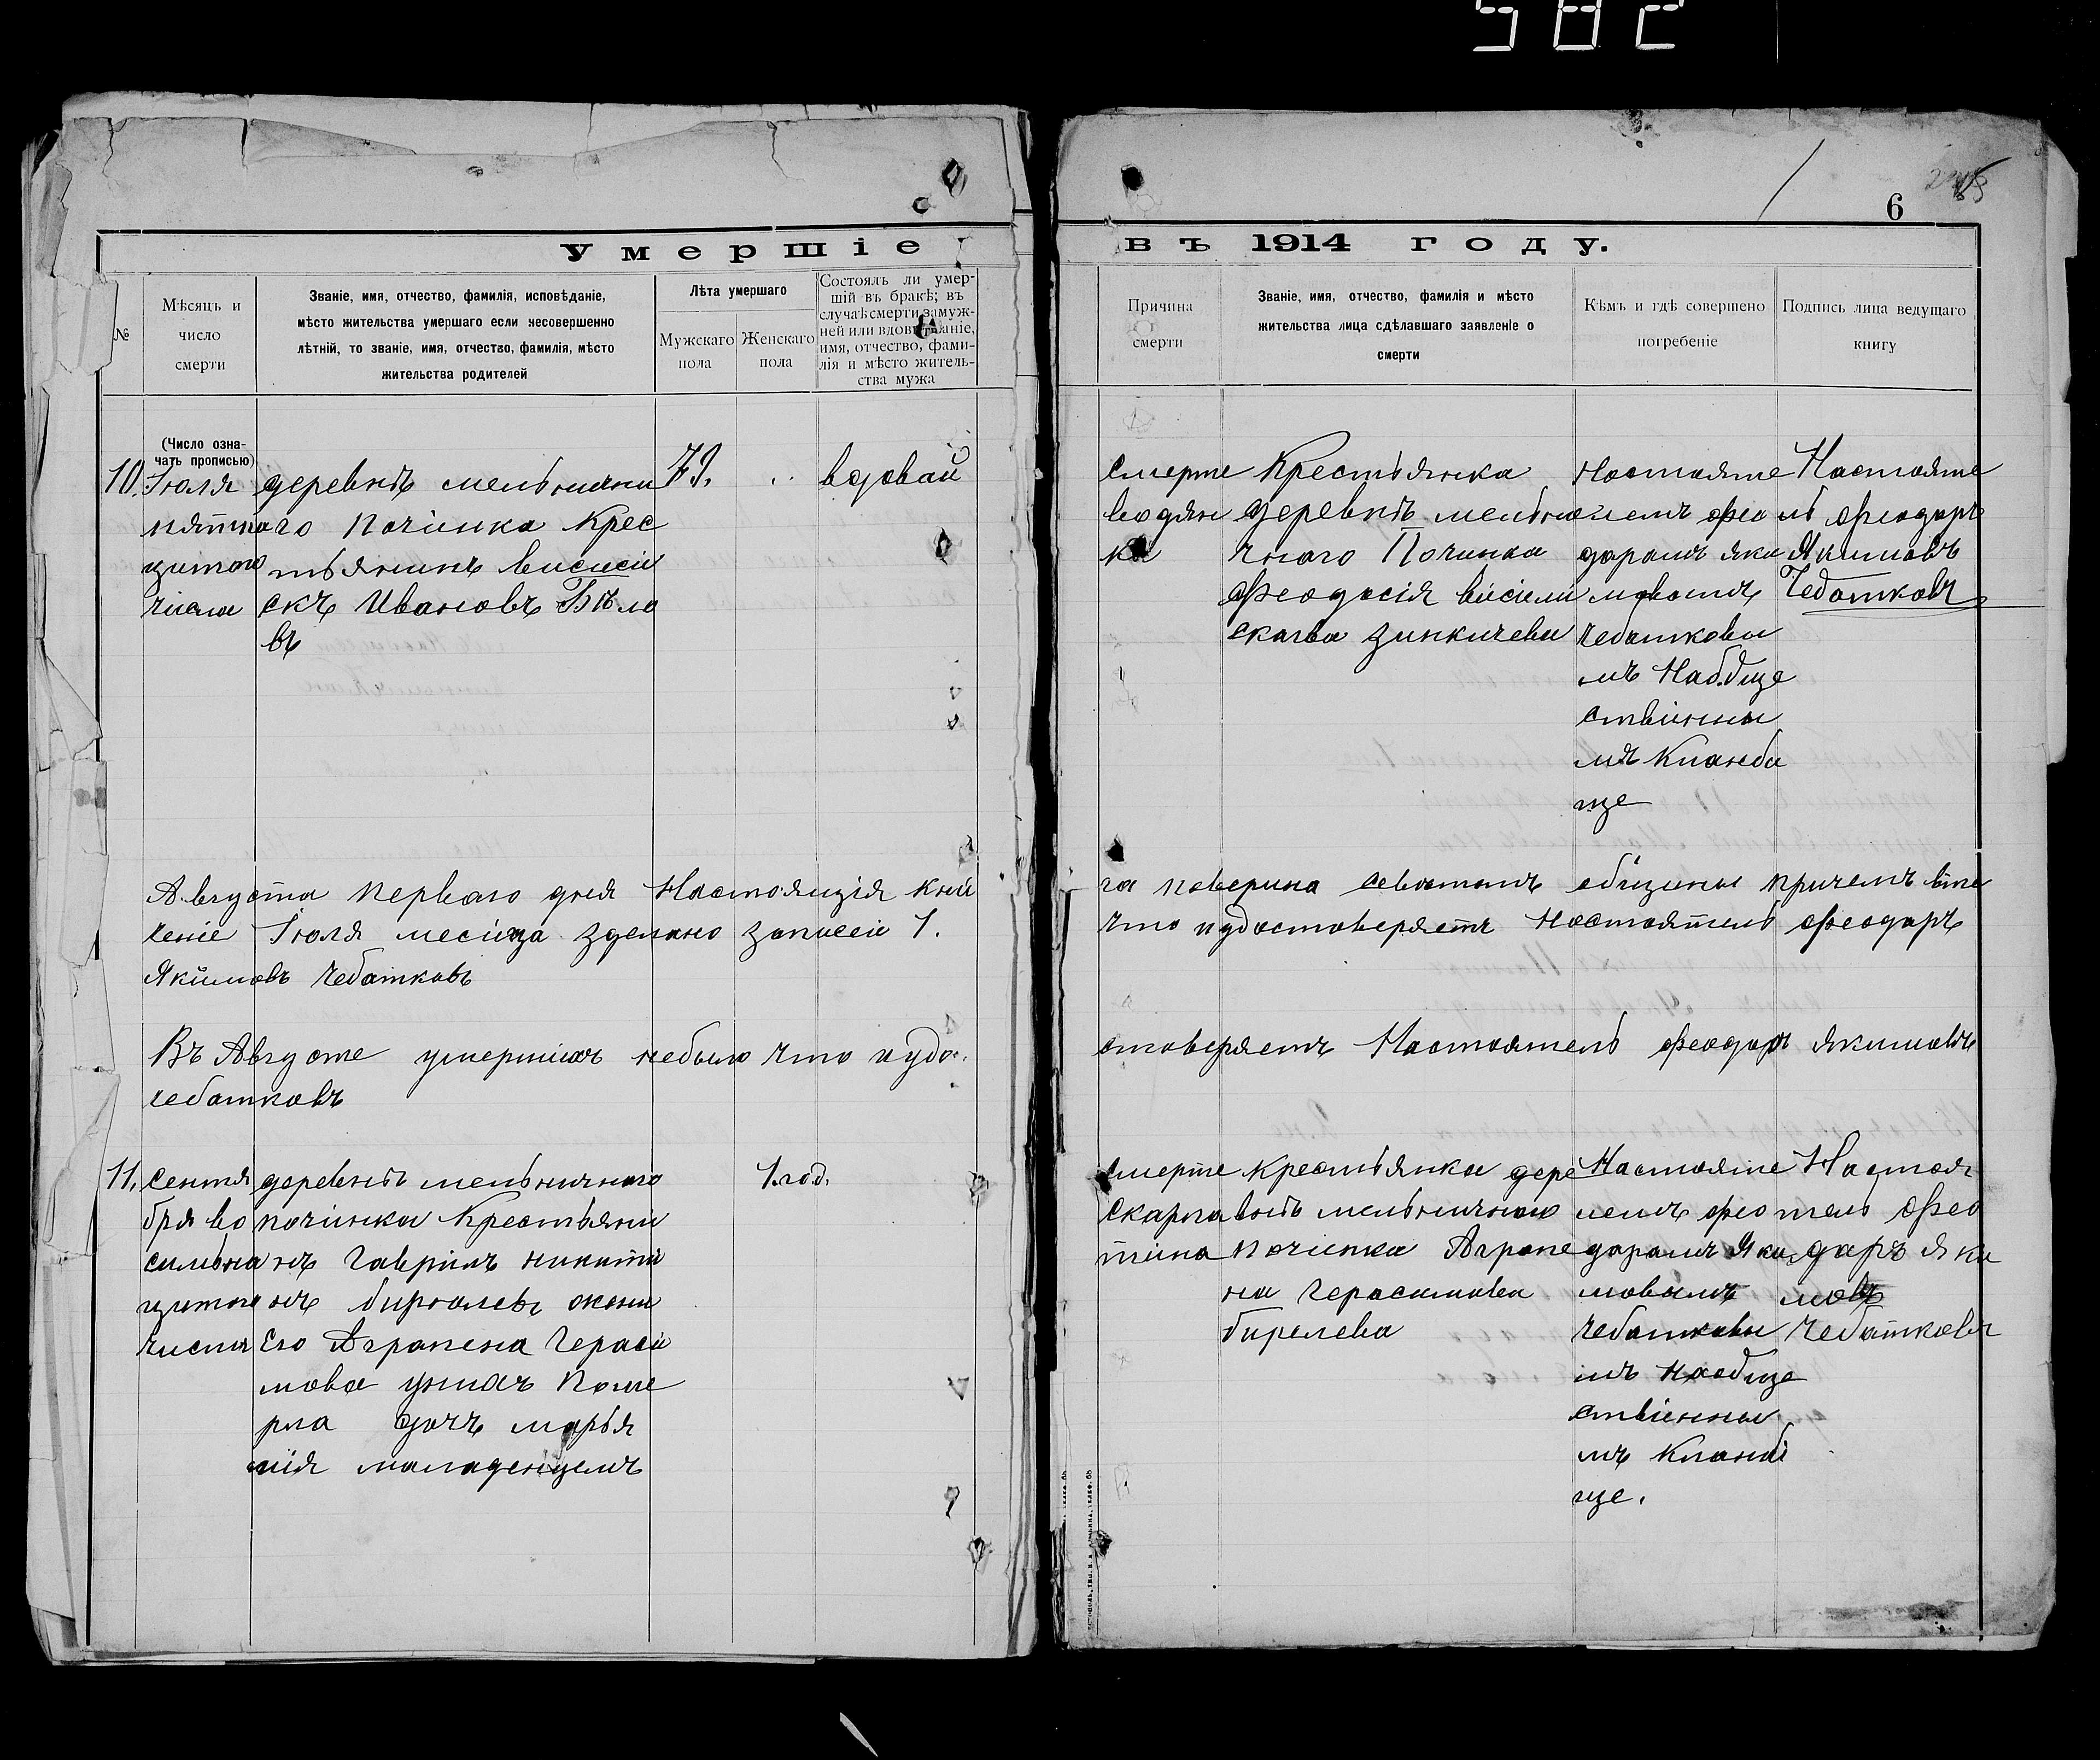 582
6
Умершіе
въ 1914 году.
№
Мѣсяцъ и
число
смерти
Званіе, имя, отчество, фамилія, исповѣданіе,
мѣсто жительства умершаго если несовершенно
лѣтній, то званіе, имя, отчество, фамилія, мѣсто
жительства родителей
Лѣта умершаго
Мужскаго
пола
Женскаго
пола
Состоялъ ли умер-
шій въ бракѣ; въ
случаѣ смерти замуж-
ней или вдовы званіе,
имя, отчество, фами-
лія и мѣсто житель-
ства мужа
Причина
смерти
Званіе, имя, отчество, фамилія и мѣсто
жительства лица сдѣлавшаго заявленіе о
смерти
Кѣмъ и гдѣ совершено
погребеніе
Подпись лица ведущаго
книгу
(Число озна-
чать прописью)
10.
Іюля
пятна
цатого
числа
деревнѣ мельнични
го Почінка Крес
тьянинъ
скъ Ивановъ Бѣло
въ
73.
вдовай
смерте
водян
ка
Крестьянка
деревнѣ мельни
чнаго Починка
Феодосія
Зинкичева
Настояте
лемъ Фео
даромъ Яки
мовымъ
Чебатковы
мъ Наобще
ствіенны
мъ Кланби
ще
Настояте
ль Феодоръ
Якимовъ
Чебатковъ
Августа перваго дня Настоящія кній
га поверина советомъ общины причемъ вте
ченіе Іюля месіяца зделано записеи 1.
что иудостоверяетъ Настоятель Феодоръ
Якимовъ Чебатковъ
Въ Августе умершихъ небыло что иудо
стоверяетъ Настоятель Феодоръ Якимовъ
чебатковъ
11.
сентя
бря во
семьна
цатое
числа
деревнѣ мельничнаго
почінка Крестьяни
нъ Гаврилъ никити
нъ бирюлевъ жена
Его Аграпена Гераси
мова унихъ поме
рла дочъ марья
нія маладенцемъ
1.год.
смерте
скарла
тіна
Крестьянка дере
внѣ мельничнаго
починка Аграпе
на Герасимова
бирелева
Настояте
лемъ Фео
даромъ Яки
мовымъ
Чебатковы
мъ Наобще
ствіенны
мъ Кланбі
ще.
Настоя
тель Фео
даръ Яки
мовъ
Чебатковъ